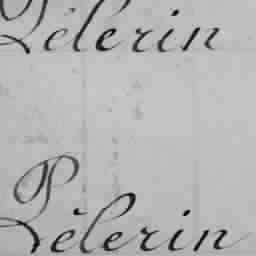 Pèlerin
Pèlerin